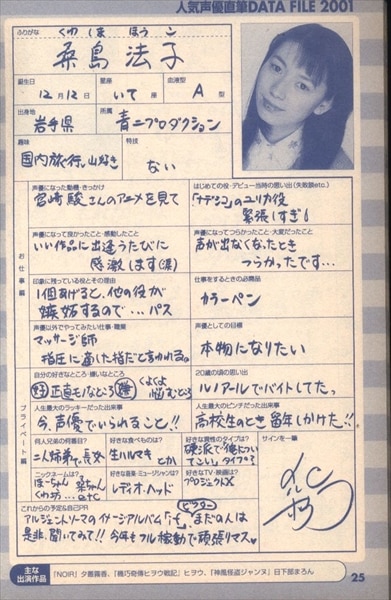 人気声優直筆DATA FILE 2001
ふりがな くわ しま ほう こ
桑島 法子
誕生日 星座 血液型
12月12日 いて座 A型
出身地 所属
岩手県 青二プロダクション
趣味 特技
国内旅行、山歩き ない
声優になった動機・きっかけ
宮崎駿さんのアニメを見て
はじめての役・デビュー当時の思い出(失敗談etc.)
「ナデシコ」のユリカ役
緊張しすぎ!
お仕事編
声優になって良かったこと・感動したこと
いい作品に出逢うたびに
感激します(涙)
声優になってつらかったこと・大変だったこと
声が出なくなったとき
つらかったです…
印象に残っている役とその理由
1個あげると、他の役が
嫉妬するので…パス
仕事をするときの必需品
カラーペン
声優以外でやってみたい仕事・職業
マッサージ師
指圧に適した指だと言われる。
声優としての目標
本物になりたい
プライベート編
自分の好きなところ・嫌いなところ
好 正直なところ 嫌 くよくよ
悩むところ
20歳の頃の思い出
ルノアールでバイトしてた。
人生最大のラッキーだった出来事
今、声優でいられること!!
人生最大のピンチだった出来事
高校生のとき留年しかけた!!
何人兄弟の何番目?
二人姉弟で、長女
好きな食べものは?
生ハルマキ
好きな異性のタイプは?
硬派で俺について
こい。タイプ?
サインを一筆
ニックネームは?
ほーちゃん 桑ちゃん
くわ坊… etc
好きな音楽・ミュージシャンは?
レディオヘッド
好きなTV・映画は?
プロジェクトX
これからの予定&自己PR
アルジェントソーマのイメージアルバム「
まだの人は
是非、聞いてみて!!今年もフル稼動で頑張りマス
主な出演作品
「NOIR」夕叢霧香、「機巧奇傳ヒヲウ戦記」ヒヲウ、「神風怪盗ジャンヌ」日下部まろん
25